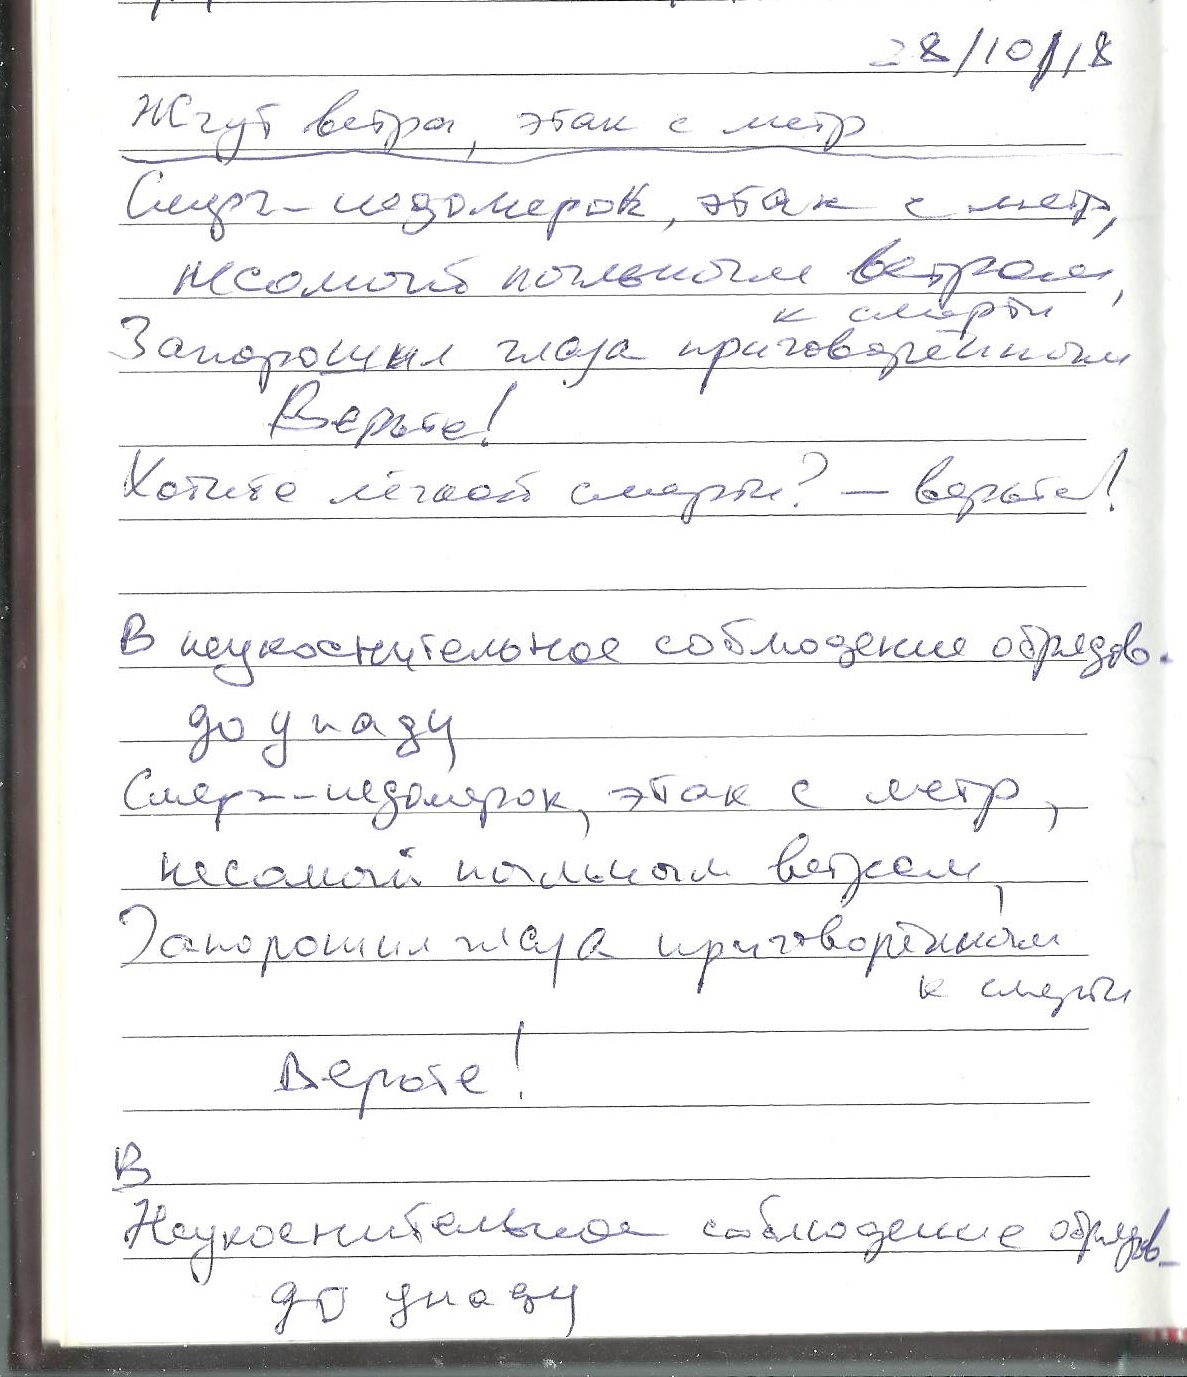 28/10/18
Жгут ветра, этак с метр
Смерч-недомерок, этак с метр,
Несомый пыльным ветром,
к смерти
Запорошил глаза приговорённым
Верьте!
Хотите лёгкой смерти? - верьте!
В неукоснительное соблюдение обрядов.
до упаду
Смерч-недомерок, этак с метр,
несомый пыльным ветром,
Запорошил глаза приговорённым
к смерти
Верьте!
В
Неукоснительное соблюдение обрядов
до упаду